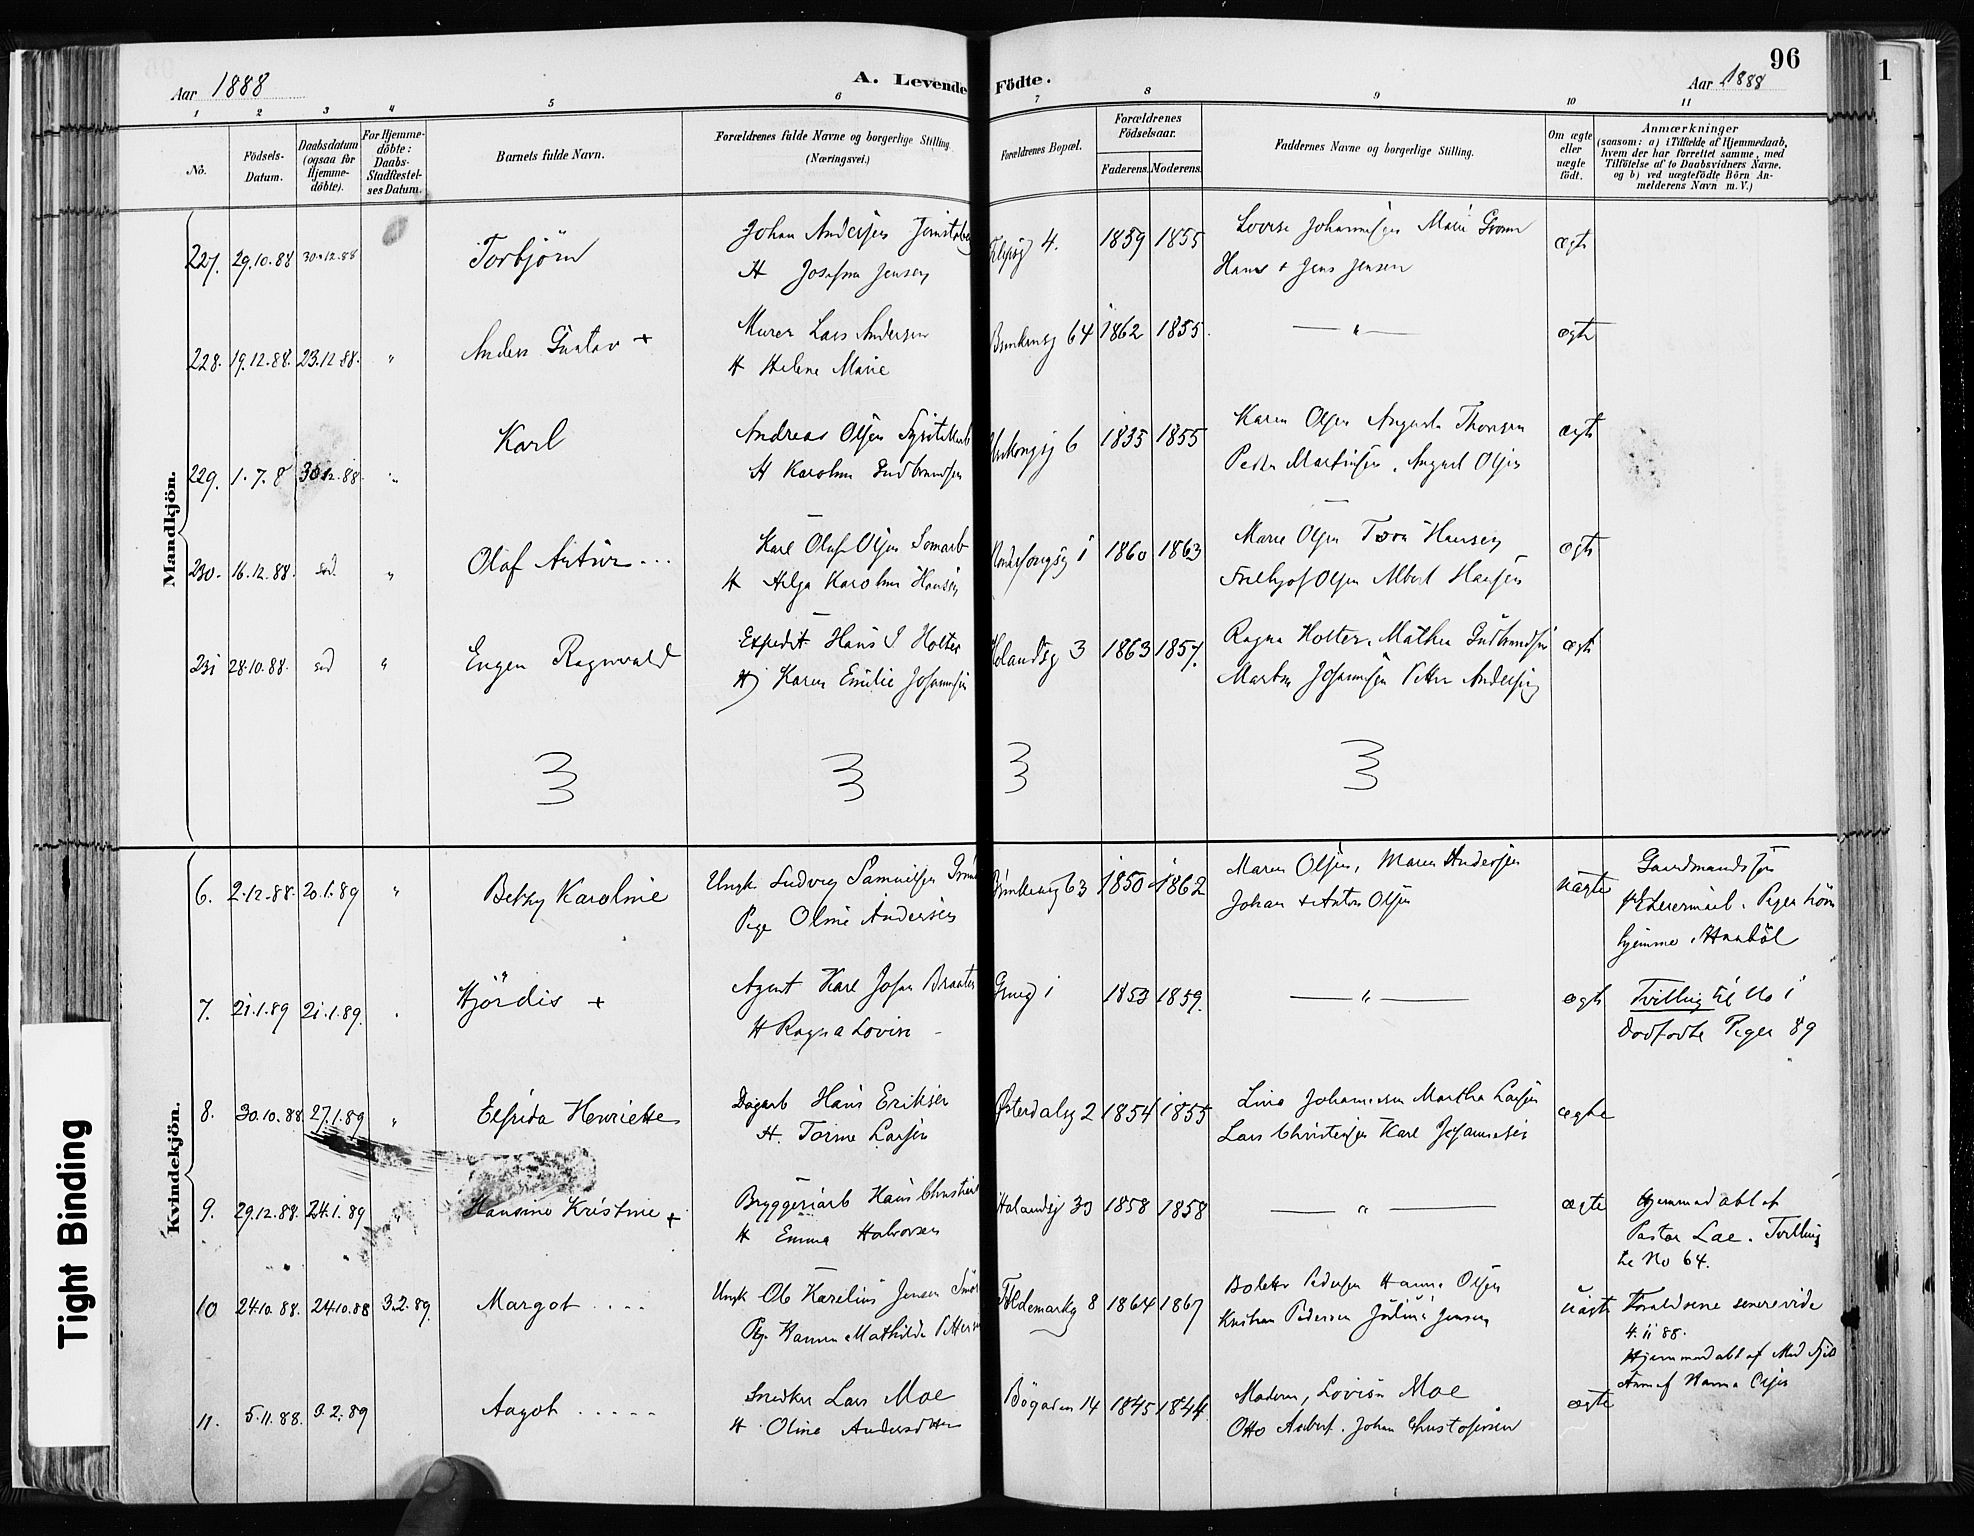 96
1
Aar 1888
A. Levende Födte.
Aar 1888
1 2 3 4 5 6 7 8 9 10 11
No.
Födsels-Datum.
Daabsdatum (ogsaa for Hjemme-döbte).
For Hjemme-döbte: Daabs-Stadfæstel-ses Datum.
Barnets fulde Navn.
Forældrenes fulde Navne og borgerlige Stilling (Næringsvei.)
Forældrenes Bopæl.
Forældrenes Födselsaar.
Faderens. Moderens.
Faddernes Navne og borgerlige Stilling.
Om ægte eller uægte födt.
Anmærkninger
(saasom: a) i Tilfælde af Hjemmedaab,
hvem der har forrettet samme, med
Tilföielse af to Daabsvidners Navne.
og b) ved uægtefödte Börn An-
melderens Navn m. V.)
Mandkjön.
227. 29.10.88 30.12.88 Torbjörn Johan Andersen 4. 1859 1855 Lovise Johannesen Marie ægte
H Josefine Jensen Hans + Jens Jensen
228. 19.12.88. 23.12.88. " Anders Gustav + Murer Lars Andersen 64 1862 1855. — " — ægte
H Helene Marie
229. 1.7.8 30.12.88 " Karl Andreas Olsen 6 1835 1855 Karen Olsen Augusta Thoresen ægte
H Karoline Gudbrandsen Peder Martinsen, August Olsen
230. 16.12.88. sod. " Olaf Artur... Karl Olaf Olsen Somarb 1 1860 1863 Marie Olsen Tora Hansen ægte
H Helga Karoline Hansen Fridtjof Olsen Albert Hansen
231 28.10.88. sod " Eugen Ragnvald Expedit Hans J Holter 3 1863 1857. Ragna Holter, Mathea Gudbrandsen ægte
H Karen Emilie Johannesen Martin Johannesen Petter Andersen
Kvindekjön.
6. 2.12.88. 20.1.89 " Betzy Karoline Ungk Ludvig Samuelsen 63 1850 1862 Maren Olsen, Maren Andersen uægte Gaardmandssön
Pige Oline Andersen Johan + Anton Olsen Pigen
hjemme i
7. 21.1.89 21.1.89. Hjördis + Agent Karl Johan Braaten 1 1853 1859. — " — ægte Tvilling til No 1
H Ragna Lovise Dödfödte Piger 89
8. 30.10.88 27.1.89 " Elfrida Henriette Dagarb Hans Eriksen Østerdalsg 2 1854 1855 Lina Johannesen Martha Larsen ægte
H. Torine Larsen Lars Christensen Karl Johannesen
9. 29.12.88. 24.1.89 " Hansine Kristine + Bryggeriarb Hans Christens 33 1858 1858 — " — ægte Hjemmedöbt af
H Emma Halvorsen Pastor Lae. Tvilling
til No 64.
10 24.10.88. 24.10.88 3.2.89. Margot .... Ungk Ole Karelius Jensen 8 1864 1867 Bolette Pedersen Hanna Olsen uægte Forældrene senere vide
Pige Hanna Mathilde Petters Kristian Pedersen Julius Jensen 4.11.88.
Hjemmedöbt af Mad
Hanna Olsen
11. 5.11.88. 3.2.89 Aagot ..... Snedker Lars Moe Bögaden 14 1845 1844. Moderen, Lovise Moe ægte
H Oline Andersdtter Otto Johan Christofersen
Tight Binding